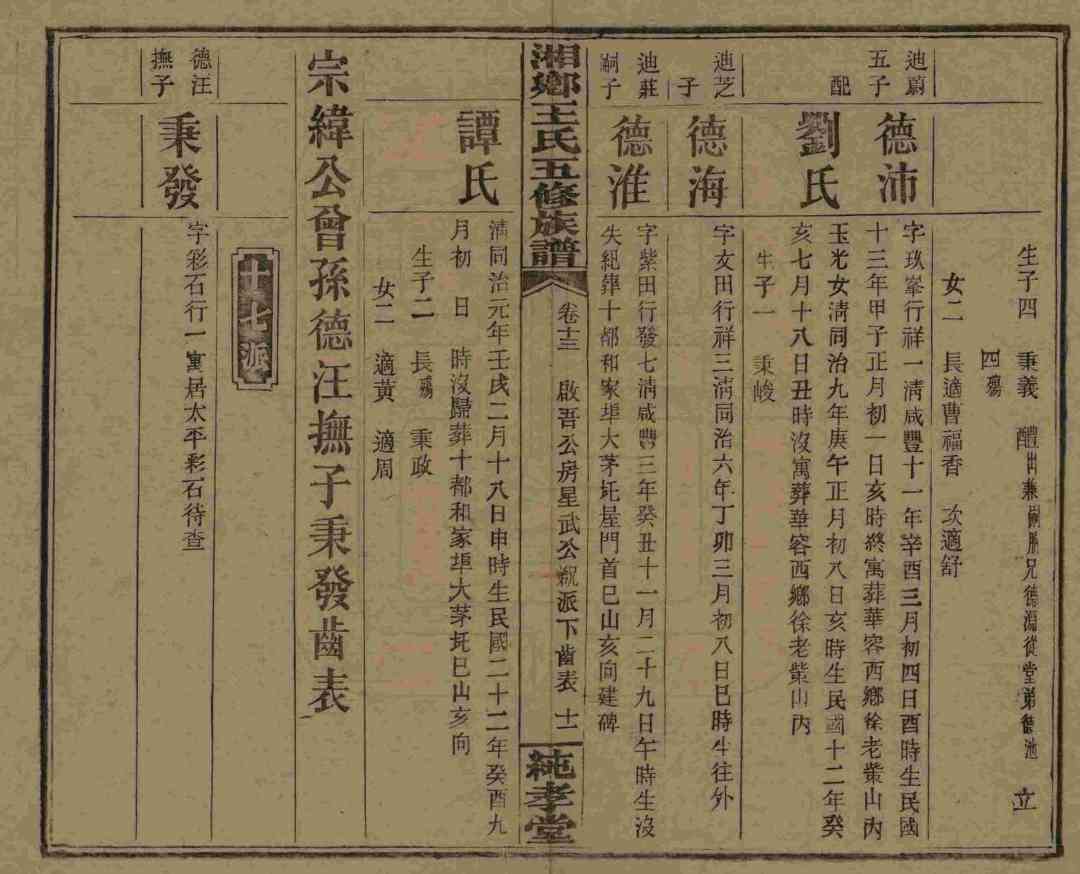 生子四　秉義　醴出兼嗣胞兄德淵從堂弟德池　立
四殤
女二　長適曹福香　次適舒
迪蔚五子　德沛　字玖峯行祥一清咸豐十一年辛酉三月初四日酉時生民國
十三年甲子正月初一日亥時終寓葬華容西鄉徐老棠山內
配　劉氏　玉光女清同治九年庚午正月初八日亥時生民國十二年癸
亥七月十八日丑時沒寓葬華容西鄉徐老棠山內
生子一　秉峻
迪芝子　德海　字文田行祥三清同治六年丁卯三月初八日巳時生往外
迪莊嗣子　德淮　字紫田行發七清咸豐三年癸丑十一月二十九日午時生沒
失紀葬十都和家埠大茅坵屋門首巳山亥向建碑
湘鄉王氏五修族譜　卷十三　啟吾公房星武公派下齒表　十一　純孝堂
譚氏　清同治元年壬戌二月十八日申時生民國二十二年癸酉九
月初　日　時沒歸葬十都和家埠大茅坵巳山亥向
生子二　長殤　秉政
女二　適黃　適周
宗緯公曾孫德汪撫子秉發齒表
十七派
德汪撫子　秉發　字彩石行一寓居太平彩石待查